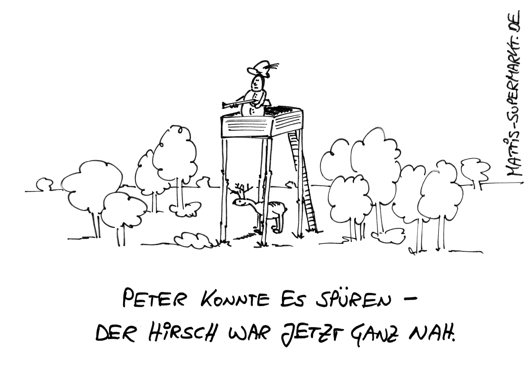 MATTIS-SUPERMARKT.DE
PETER KONNTE ES SPÜREN –
DER HIRSCH WAR JETZT GANZ NAH.